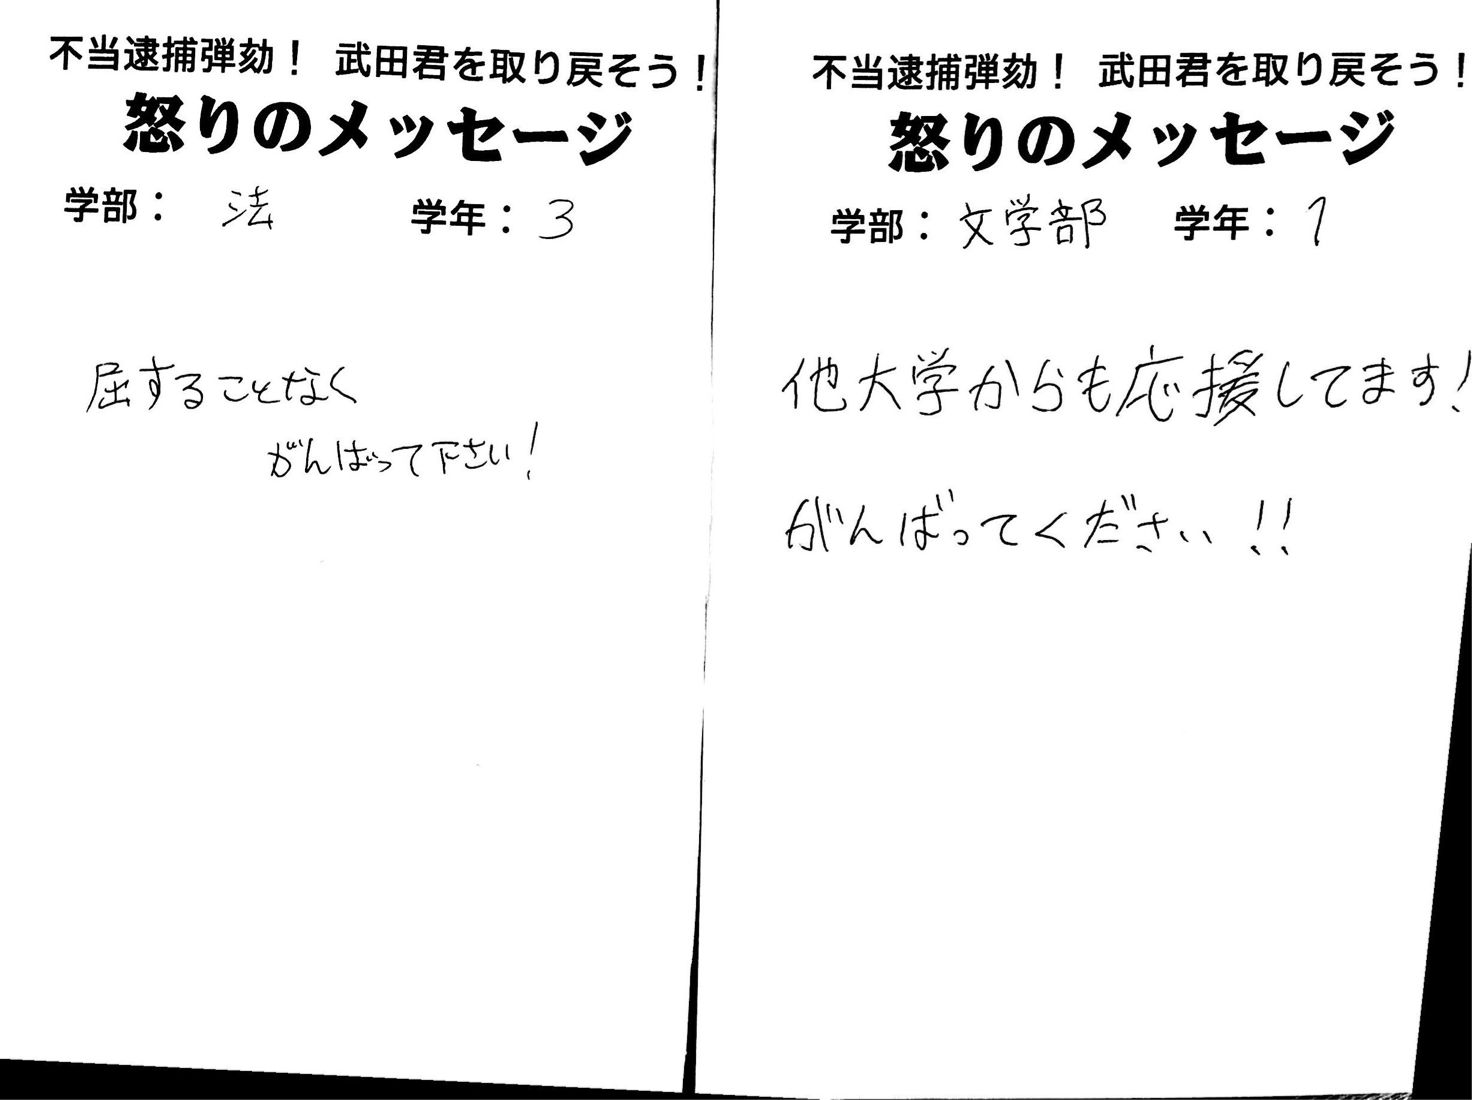 不当逮捕弾劾！ 武田君を取り戻そう！
怒りのメッセージ
学部： 法 学年： 3
屈することなく
がんばって下さい！
不当逮捕弾劾！ 武田君を取り戻そう！
怒りのメッセージ
学部： 文学部 学年： 1
他大学からも応援してます！
がんばってください！！